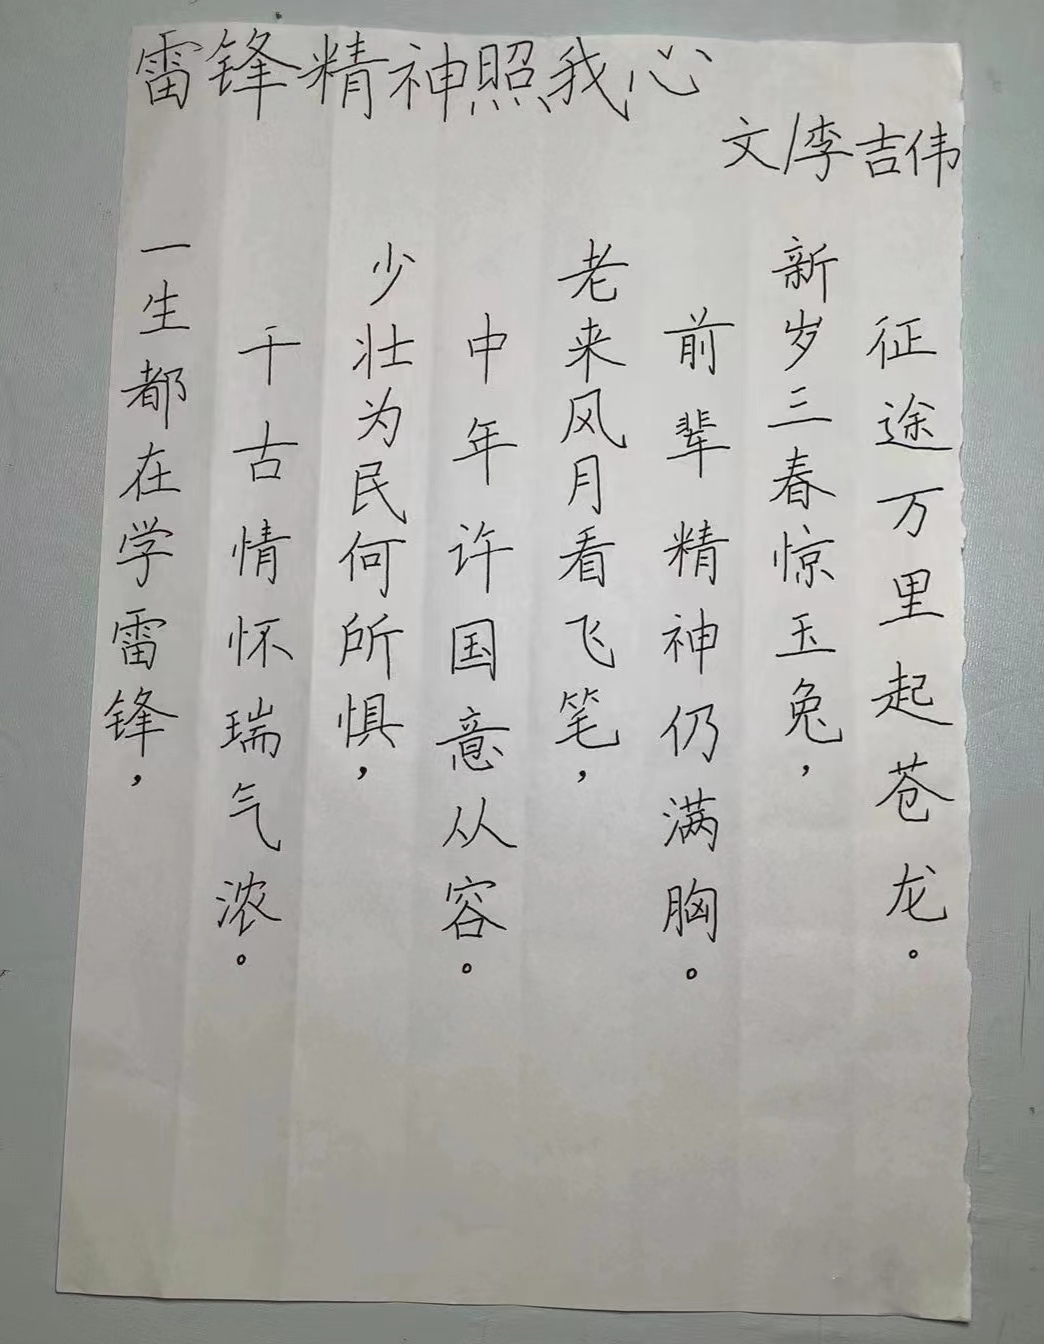 雷锋精神照我心
文/李吉伟
一生都在学雷锋，
千古情怀瑞气浓。
少壮为民何所惧，
中年许国意从容。
老来风月看飞笔，
前辈精神仍满胸。
新岁三春惊玉兔，
征途万里起苍龙。